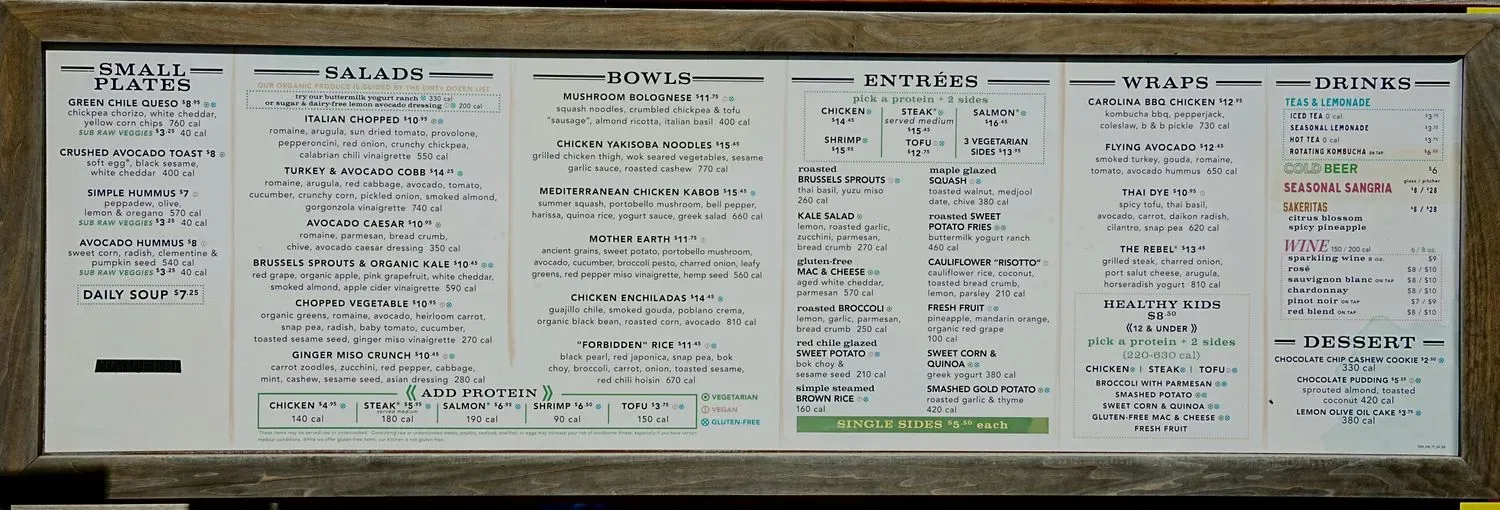 SMALL
PLATES
GREEN CHILE QUESO $8.95
chickpea chorizo, white cheddar,
yellow corn chips 760 cal
SUB RAW VEGGIES $3.25 40 cal
CRUSHED AVOCADO TOAST $8
soft egg*, black sesame,
white cheddar 400 cal
SIMPLE HUMMUS $7
peppadew, olive,
lemon & oregano 570 cal
SUB RAW VEGGIES $3.25 40 cal
AVOCADO HUMMUS $8
sweet corn, radish, clementine &
pumpkin seed 540 cal
SUB RAW VEGGIES $3.25 40 cal
DAILY SOUP $7.25
SALADS
OUR ORGANIC PRODUCE IS GUIDED BY THE DIRTY DOZEN LIST
try our buttermilk yogurt ranch 330 cal
or sugar & dairy-free lemon avocado dressing 200 cal
ITALIAN CHOPPED $10.95
romaine, arugula, sun dried tomato, provolone,
pepperoncini, red onion, crunchy chickpea,
calabrian chili vinaigrette 550 cal
TURKEY & AVOCADO COBB $14.25
romaine, arugula, red cabbage, avocado, tomato,
cucumber, crunchy corn, pickled onion, smoked almond,
gorgonzola vinaigrette 740 cal
AVOCADO CAESAR $10.95
romaine, parmesan, bread crumb,
chive, avocado caesar dressing 350 cal
BRUSSELS SPROUTS & ORGANIC KALE $10.45
red grape, organic apple, pink grapefruit, white cheddar,
smoked almond, apple cider vinaigrette 590 cal
CHOPPED VEGETABLE $10.95
organic greens, romaine, avocado, heirloom carrot,
snap pea, radish, baby tomato, cucumber,
toasted sesame seed, ginger miso vinaigrette 270 cal
GINGER MISO CRUNCH $10.45
carrot zoodles, zucchini, red pepper, cabbage,
mint, cashew, sesame seed, asian dressing 280 cal
BOWLS
MUSHROOM BOLOGNESE $11.75
squash noodles, crumbled chickpea & tofu
"sausage", almond ricotta, italian basil 400 cal
CHICKEN YAKISOBA NOODLES $15.45
grilled chicken thigh, wok seared vegetables, sesame
garlic sauce, roasted cashew 770 cal
MEDITERRANEAN CHICKEN KABOB $15.45
summer squash, portobello mushroom, bell pepper,
harissa, quinoa rice, yogurt sauce, greek salad 660 cal
MOTHER EARTH $11.75
ancient grains, sweet potato, portobello mushroom,
avocado, cucumber, broccoli pesto, charred onion, leafy
greens, red pepper miso vinaigrette, hemp seed 560 cal
CHICKEN ENCHILADAS $14.45
guajillo chile, smoked gouda, poblano crema,
organic black bean, roasted corn, avocado 810 cal
"FORBIDDEN" RICE $11.45
black pearl, red japonica, snap pea, bok
choy, broccoli, carrot, onion, toasted sesame,
red chili hoisin 670 cal
ADD PROTEIN
CHICKEN $4.95 STEAK* $5.95 SALMON* $6.95 SHRIMP $6.50 TOFU $3.75
served medium
140 cal 180 cal 190 cal 90 cal 150 cal
VEGETARIAN
VEGAN
GLUTEN-FREE
*These items may be served raw or undercooked. Consuming raw or undercooked meats, poultry, seafood, shellfish, or eggs may increase your risk of foodborne illness, especially if you have certain
medical conditions. While we offer gluten-free items, our kitchen is not gluten-free.
ENTRÉES
pick a protein + 2 sides
CHICKEN $14.45
STEAK* served medium $15.45
SALMON* $16.45
SHRIMP $15.95
TOFU $12.75
3 VEGETARIAN SIDES $13.95
roasted
BRUSSELS SPROUTS
thai basil, yuzu miso
260 cal
KALE SALAD
lemon, roasted garlic,
zucchini, parmesan,
bread crumb 270 cal
gluten-free
MAC & CHEESE
aged white cheddar,
parmesan 570 cal
roasted BROCCOLI
lemon, garlic, parmesan,
bread crumb 250 cal
red chile glazed
SWEET POTATO
bok choy &
sesame seed 210 cal
simple steamed
BROWN RICE
160 cal
maple glazed
SQUASH
toasted walnut, medjool
date, chive 380 cal
roasted SWEET
POTATO FRIES
buttermilk yogurt ranch
460 cal
CAULIFLOWER "RISOTTO"
cauliflower rice, coconut,
toasted bread crumb,
lemon, parsley 210 cal
FRESH FRUIT
pineapple, mandarin orange,
organic red grape
100 cal
SWEET CORN &
QUINOA
greek yogurt 380 cal
SMASHED GOLD POTATO
roasted garlic & thyme
420 cal
SINGLE SIDES $5.50 each
WRAPS
CAROLINA BBQ CHICKEN $12.95
kombucha bbq, pepperjack,
coleslaw, b & b pickle 730 cal
FLYING AVOCADO $12.45
smoked turkey, gouda, romaine,
tomato, avocado hummus 650 cal
THAI DYE $10.95
spicy tofu, thai basil,
avocado, carrot, daikon radish,
cilantro, snap pea 620 cal
THE REBEL* $13.45
grilled steak, charred onion,
port salut cheese, arugula,
horseradish yogurt 810 cal
HEALTHY KIDS
$8.50
12 & UNDER
pick a protein + 2 sides
(220-630 cal)
CHICKEN | STEAK | TOFU
BROCCOLI WITH PARMESAN
SMASHED POTATO
SWEET CORN & QUINOA
GLUTEN-FREE MAC & CHEESE
FRESH FRUIT
DRINKS
TEAS & LEMONADE
ICED TEA 0 cal $3.75
SEASONAL LEMONADE $3.75
HOT TEA 0 cal $3.75
ROTATING KOMBUCHA ON TAP
COLD BEER $6
glass / pitcher
SEASONAL SANGRIA $8 / $28
SAKERITAS $8 / $28
citrus blossom
spicy pineapple
WINE 150 / 200 cal 6 / 8 oz.
sparkling wine 8 oz. $9
rosé $8 | $10
sauvignon blanc ON TAP $8 | $10
chardonnay $8 | $10
pinot noir ON TAP $7 / $9
red blend ON TAP $8 | $10
DESSERT
CHOCOLATE CHIP CASHEW COOKIE $2.50
330 cal
CHOCOLATE PUDDING $5.25
sprouted almond, toasted
coconut 420 cal
LEMON OLIVE OIL CAKE $3.75
380 cal